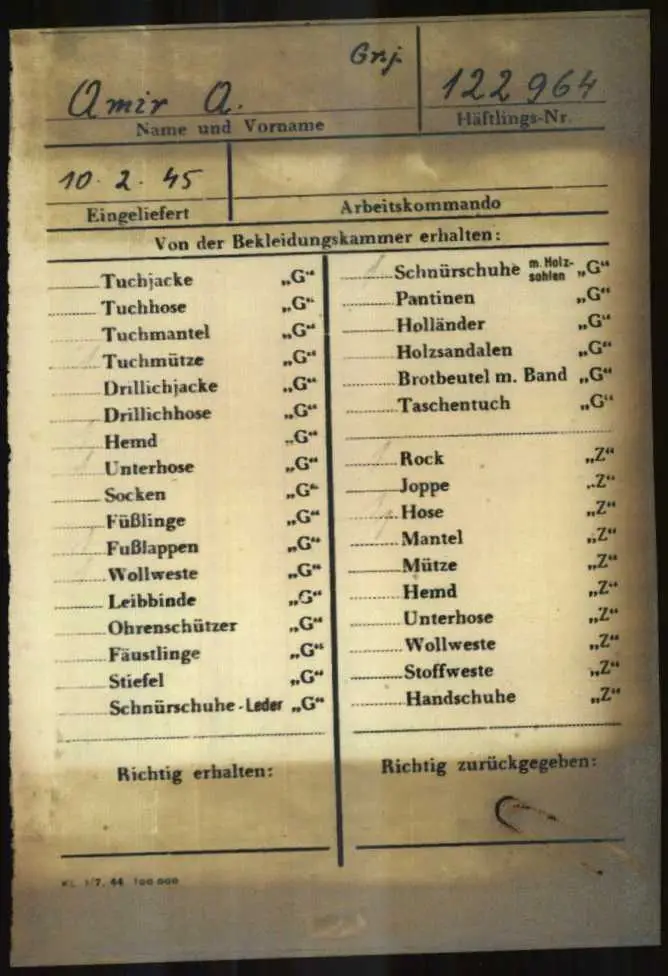 Grj.
Amir A. 122964
Name und Vorname Häftlings-Nr.
10. 2. 45
Eingeliefert Arbeitskommando
Von der Bekleidungskammer erhalten:
Tuchjacke „G“
Tuchhose „G“
Tuchmantel „G“
Tuchmütze „G“
Drillichjacke „G“
Drillichhose „G“
Hemd „G“
Unterhose „G“
Socken „G“
Füßlinge „G“
Fußlappen „G“
Wollweste „G“
Leibbinde „G“
Ohrenschützer „G“
Fäustlinge „G“
Stiefel „G“
Schnürschuhe-Leder „G“
Richtig erhalten:
1 Schnürschuhe m. Holz-sohlen „G“
Pantinen „G“
Holländer „G“
Holzsandalen „G“
Brotbeutel m. Band „G“
Taschentuch „G“
Rock „Z“
Joppe „Z“
Hose „Z“
Mantel „Z“
Mütze „Z“
Hemd „Z“
Unterhose „Z“
Wollweste „Z“
Stoffweste „Z“
Handschuhe „Z“
Richtig zurückgegeben:
KL 1/7. 44 100 000